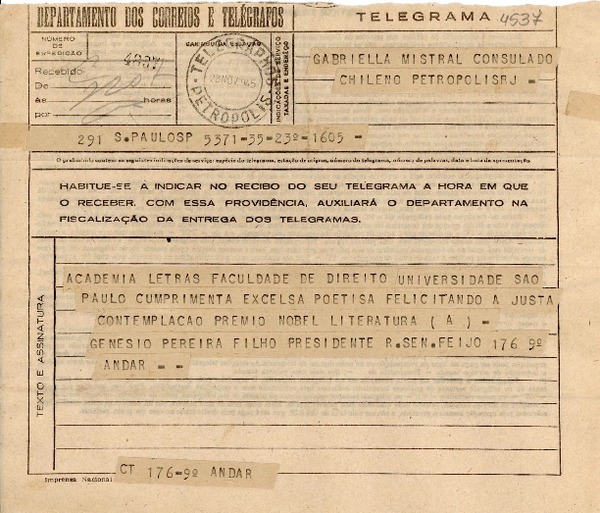 DEPARTAMENTO DOS CORREIOS E TELÉGRAFOS
TELEGRAMA
4537
NÚMERO
DE
EXPEDIÇÃO
Recebido:
De
às horas
por
TELEGRAPHOS
PETROPOLIS
INDICAÇÕES DE SERVIÇO
TAXADAS E ENDERÊÇO
GABRIELLA MISTRAL CONSULADO
CHILENO PETROPOLISRJ =
291 S.PAULOSP 5371-35-23º-1605 -
O preâmbulo contém as seguintes indicações de serviço: espécie do telegrama, estação de origem, número do telegrama, número de palavras, data e hora da apresentação.
HABITUE-SE A INDICAR NO RECIBO DO SEU TELEGRAMA A HORA EM QUE
O RECEBER. COM ESSA PROVIDÊNCIA, AUXILIARÁ O DEPARTAMENTO NA
FISCALIZAÇÃO DA ENTREGA DOS TELEGRAMAS.
TEXTO E ASSINATURA
ACADEMIA LETRAS FACULDADE DE DIREITO UNIVERSIDADE SAO
PAULO CUMPRIMENTA EXCELSA POETISA FELICITANDO A JUSTA
CONTEMPLACAO PREMIO NOBEL LITERATURA ( A ) =
GENESIO PEREIRA FILHO PRESIDENTE R.SEN.FEIJO 176 9º
ANDAR = =
CT 176-9º ANDAR
Imprensa Nacional